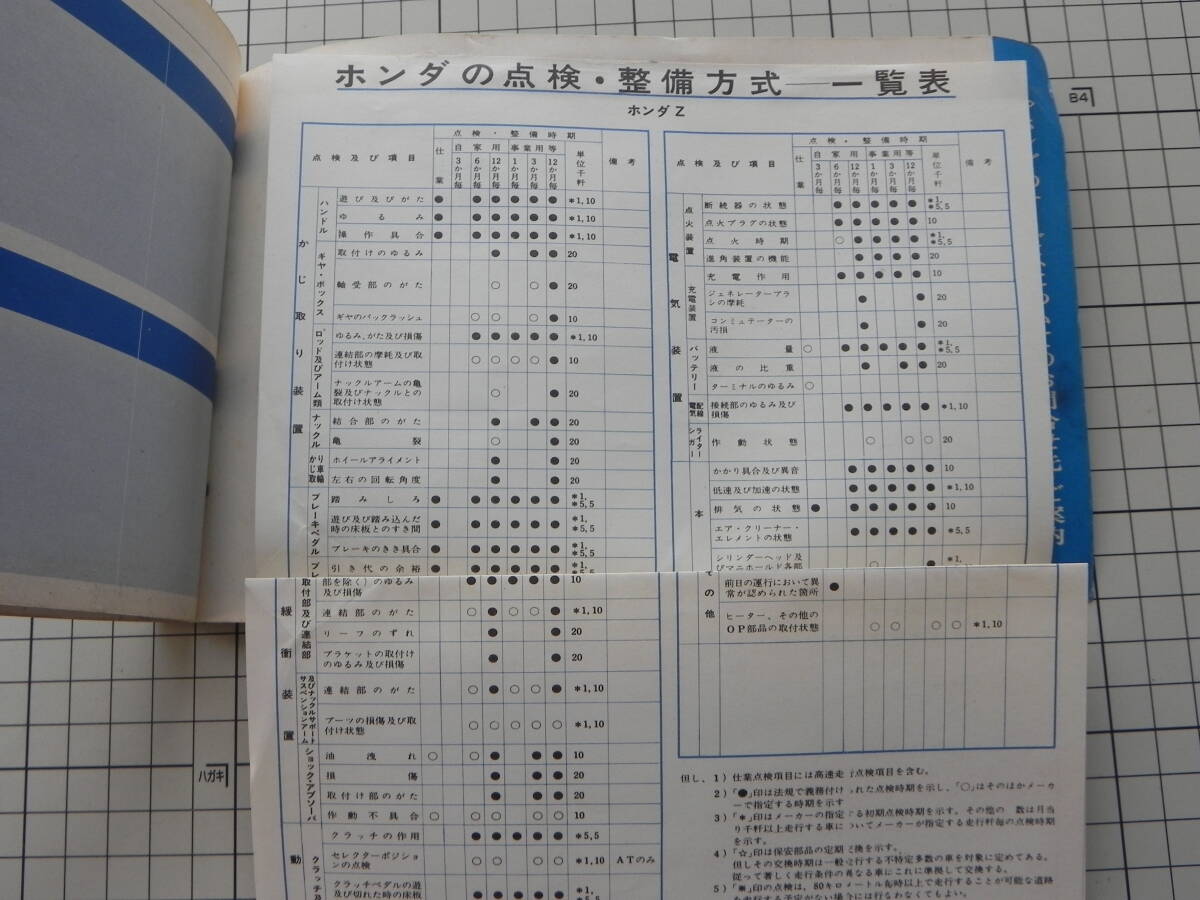 ホンダの点検・整備方式──一覧表
ホンダZ
点検及び項目
仕業
点検・整備時期
自家用
事業用等
3か月毎
6か月毎
12か月毎
1か月毎
3か月毎
12か月毎
単位千粁
備考
かじ取り装置
ハンドル
遊び及びがた ● ● ● ● ● ● *1,10
ゆるみ ● ● ● ● ● ● *1,10
操作具合 ● ● ● ● ● ● *1,10
ギヤ・ボックス
取付けのゆるみ ● ● ● 20
軸受部のがた ○ ○ ● 20
ギヤのバックラッシュ ○ ○ ○ ● 10
ロッド及びアーム類
ゆるみ、がた及び損傷 ● ● ● ● ● *1,10
連結部の摩耗及び取
付け状態 ○ ○ ○ ○ ● 10
ナックルアームの亀
裂及びナックルとの
取付け状態 ○ ● 20
ナックル
結合部のがた ● ● ● 20
亀裂 ○ ● 20
かじ取り車輪
ホイールアライメント ● ● 20
左右の回転角度 ● ● 20
ブレーキペダル
踏みしろ ● ● ● ● ● ● *1, *5,5
遊び及び踏み込んだ
時の床板とのすき間 ● ● ● ● ● ● *1, *5,5
ブレーキのきき具合 ● ● ● ● ● ● *1, *5,5
引き代の余裕 ● ● ● ● ● ● *1, *5,5
点検及び項目
仕業
点検・整備時期
自家用
事業用等
3か月毎
6か月毎
12か月毎
1か月毎
3か月毎
12か月毎
単位千粁
備考
電気装置
点火装置
断続器の状態 ● ● ● ● ● *1, *5,5
点火プラグの状態 ● ● ● ● ● 10
点火時期 ○ ● ● ● ● *1, *5,5
進角装置の機能 ● ● ● ● 20
充電装置
充電作用 ● ● ● ● ● 10
ジェネレーターブラ
シの摩耗 ● ● 20
コンミュテーターの
汚損 ● ● 20
バッテリー
液量 ○ ● ● ● ● ● *1, *5,5
液の比重 ● ● ● 20
ターミナルのゆるみ ○
電気配線
接続部のゆるみ及び
損傷 ● ● ● ● ● *1,10
シガーライター
作動状態 ○ ○ ○ 20
本
かかり具合及び異音 ● ● ● ● ● 10
低速及び加速の状態 ● ● ● ● ● *1,10
排気の状態 ● ● ● ● ● ● 10
エア・クリーナー・
エレメントの状態 ● ● ● ● ● *5,5
シリンダーヘッド及
びマニホールド各部 ○ ● *1,
緩衝装置
取付部及び連結部
部を除く)のゆるみ
及び損傷 ● ● ● ● ● 10
連結部のがた ○ ● ○ ○ ● *1,10
リーフのずれ ● ● 20
ブラケットの取付け
のゆるみ及び損傷 ● ● 20
サスペンションアーム
及びナックルサポート
連結部のがた ○ ● ○ ○ ● *1,10
ブーツの損傷及び取
付け状態 ○ ○ ○ ○ ○ *1,10
ショック・アブソーバ
油洩れ ○ ○ ● ● ● 10
損傷 ● ● ● 20
取付け部のがた ● ● ● 20
作動不具合 ○ ○ ○ ○ ○ 10
動
クラッチ及
クラッチの作用 ● ● ● ● ● *5,5
セレクターポジショ
ンの点検 ○ ○ ○ ○ *1,10 ATのみ
クラッチペダルの遊
及び切れた時の床板 ● ● ● ● ● *1, *5,5
その他
前日の運行において異
常が認められた箇所 ●
ヒーター、その他の
OP部品の取付状態 ○ ○ ○ ○ *1,10
但し、1)仕業点検項目には高速走 点検項目を含む。
2)「●」印は法規で義務付け れた点検時期を示し、「○」はそのほかメーカ
ーで指定する時期を示す
3)「*」印はメーカーの指定 る初期点検時期を示す。その他の 数は月当
り千粁以上走行する車に いてメーカーが指定する走行粁毎の点検時期
を示す。
4)「☆」印は保安部品の定期 換を示す。
但しその交換時期は一般 行する不特定多数の車を対象に定めてある。
従って著しく走行条件の異なる車にこれに準拠して交換する。
5)「※」印の点検は、80キロメートル毎時以上で走行することが可能な道路
を走行する予定がない場合には行わなくてもよい。
B4
ハガキ